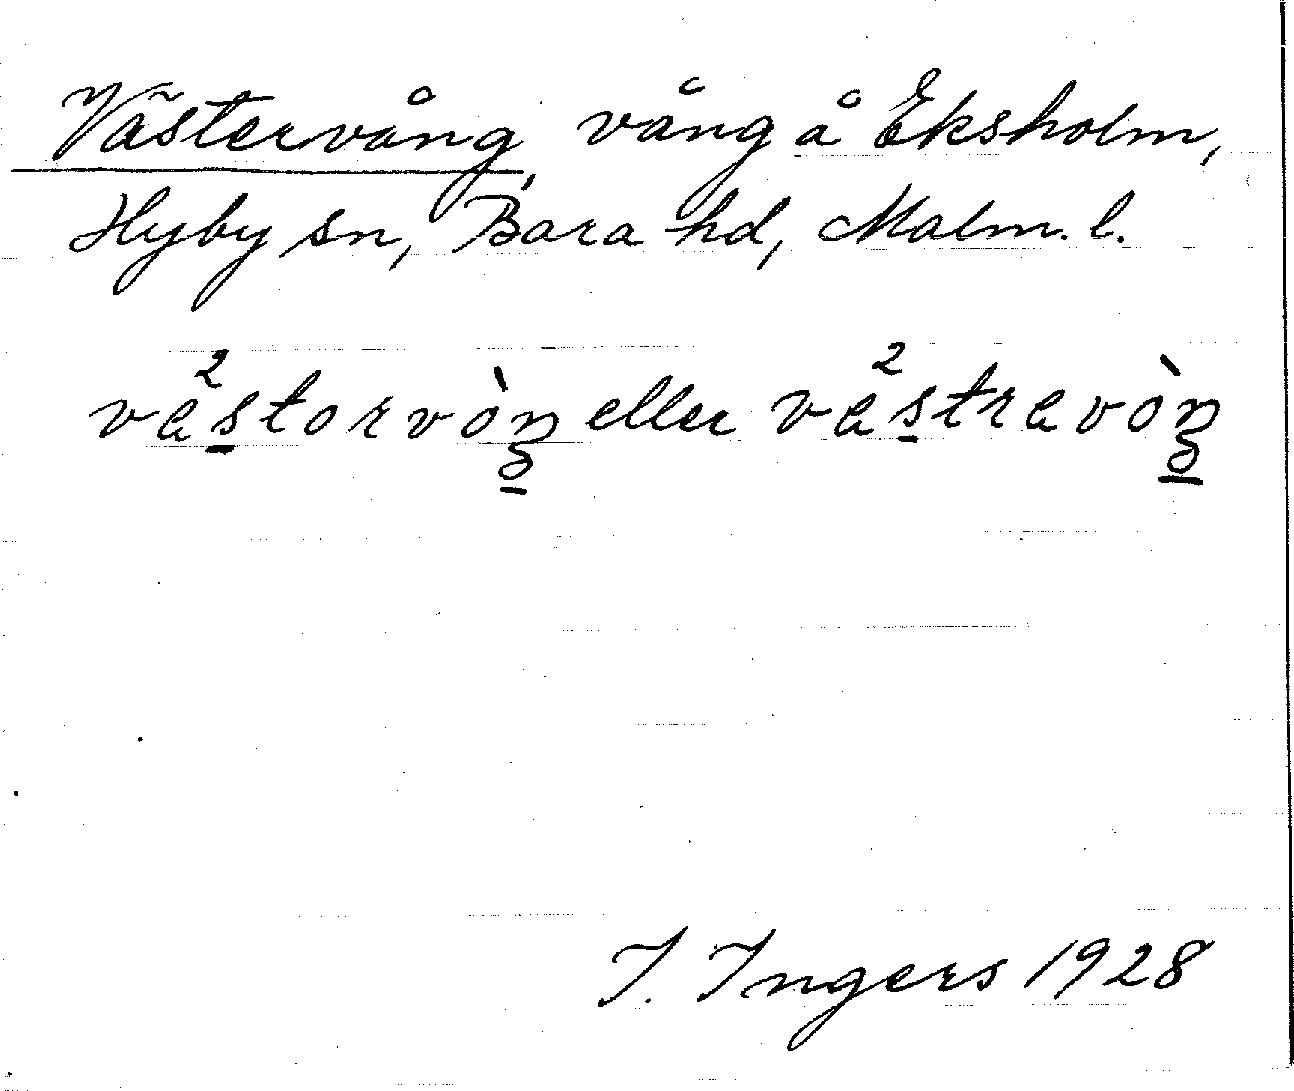 Västervång, vång å Eksholm,
Hyby sn, Bara hd, Malm. l.
va²storvòŋ eller va²stravòŋ
I. Ingers 1928